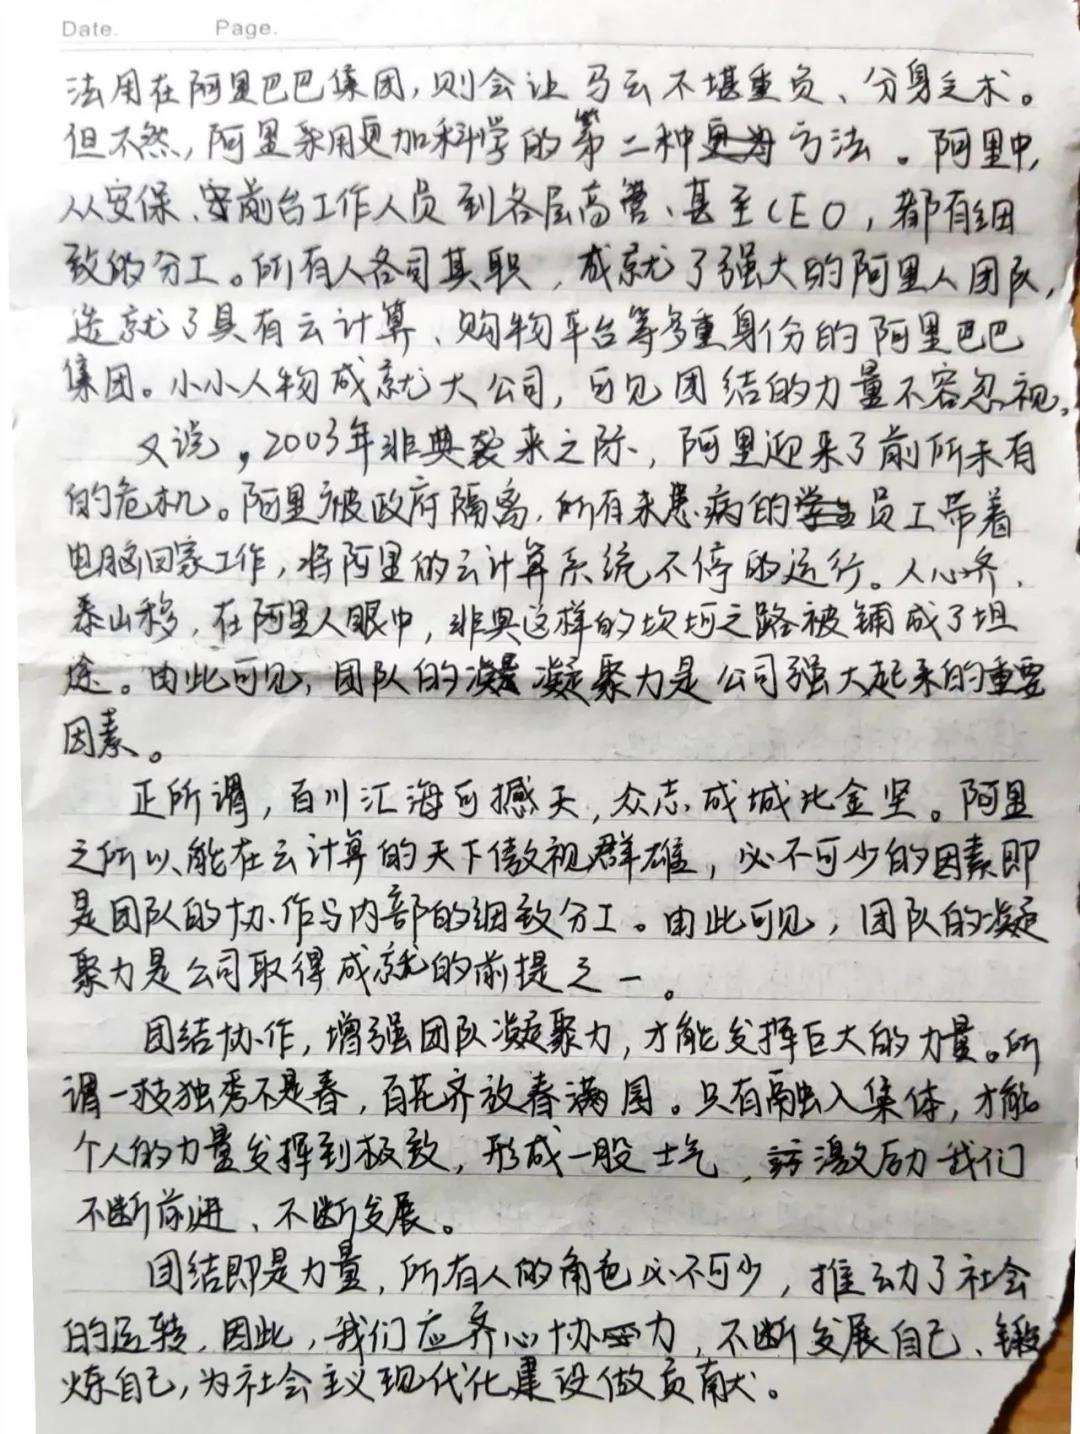 Date.          Page.
法用在阿里巴巴集团,则会让马云不堪重负、分身乏术。
但不然,阿里采用更加科学的第二种方法。阿里中,
从安保、前台工作人员到各层高管、甚至CEO,都有细
致的分工。所有人各司其职,成就了强大的阿里人团队,
造就了具有云计算、购物平台等多重身份的阿里巴巴
集团。小小人物成就大公司,可见团结的力量不容忽视。
又说,2003年非典袭来之际,阿里迎来了前所未有
的危机。阿里被政府隔离,所有未患病的员工带着
电脑回家工作,将阿里的云计算系统不停的运行。人心齐,
泰山移,在阿里人眼中,非典这样的坎坷之路被铺成了坦
途。由此可见,团队的凝聚力是公司强大起来的重要
因素。
正所谓,百川汇海可撼天,众志成城比金坚。阿里
之所以能在云计算的天下傲视群雄,必不可少的因素即
是团队的协作与内部的细致分工。由此可见,团队的凝
聚力是公司取得成就的前提之一。
团结协作,增强团队凝聚力,才能发挥巨大的力量。所
谓一枝独秀不是春,百花齐放春满园。只有融入集体,才能
个人的力量发挥到极致,形成一股士气,激励我们
不断前进、不断发展。
团结即是力量,所有人的角色必不可少,推动了社会
的运转,因此,我们应齐心协力,不断发展自己、锻
炼自己,为社会主义现代化建设做贡献。